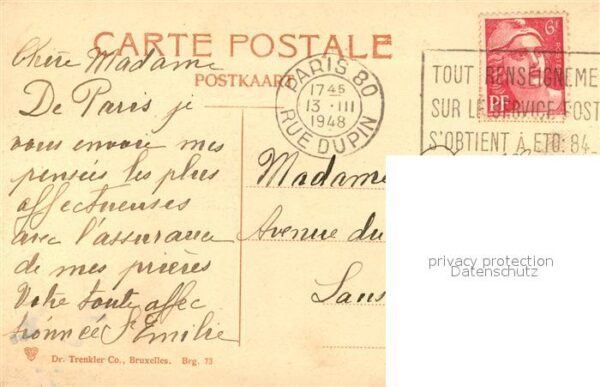 CARTE POSTALE
POSTKAART
Chère Madame
De Paris je
vous envoie mes
pensées les plus
affectueuses
avec l'assurance
de mes prières
Votre toute affec
tionnée S. Emilie
PARIS 80
17 45
13 · III
1948
RUE DUPIN
6F
PF
TOUT RENSEIGNEME
SUR LE SERVICE POST
S'OBTIENT À ETO: 84.
Madame
Avenue du
Laus
privacy protection
Datenschutz
Dr. Trenkler Co., Bruxelles. Brg. 73